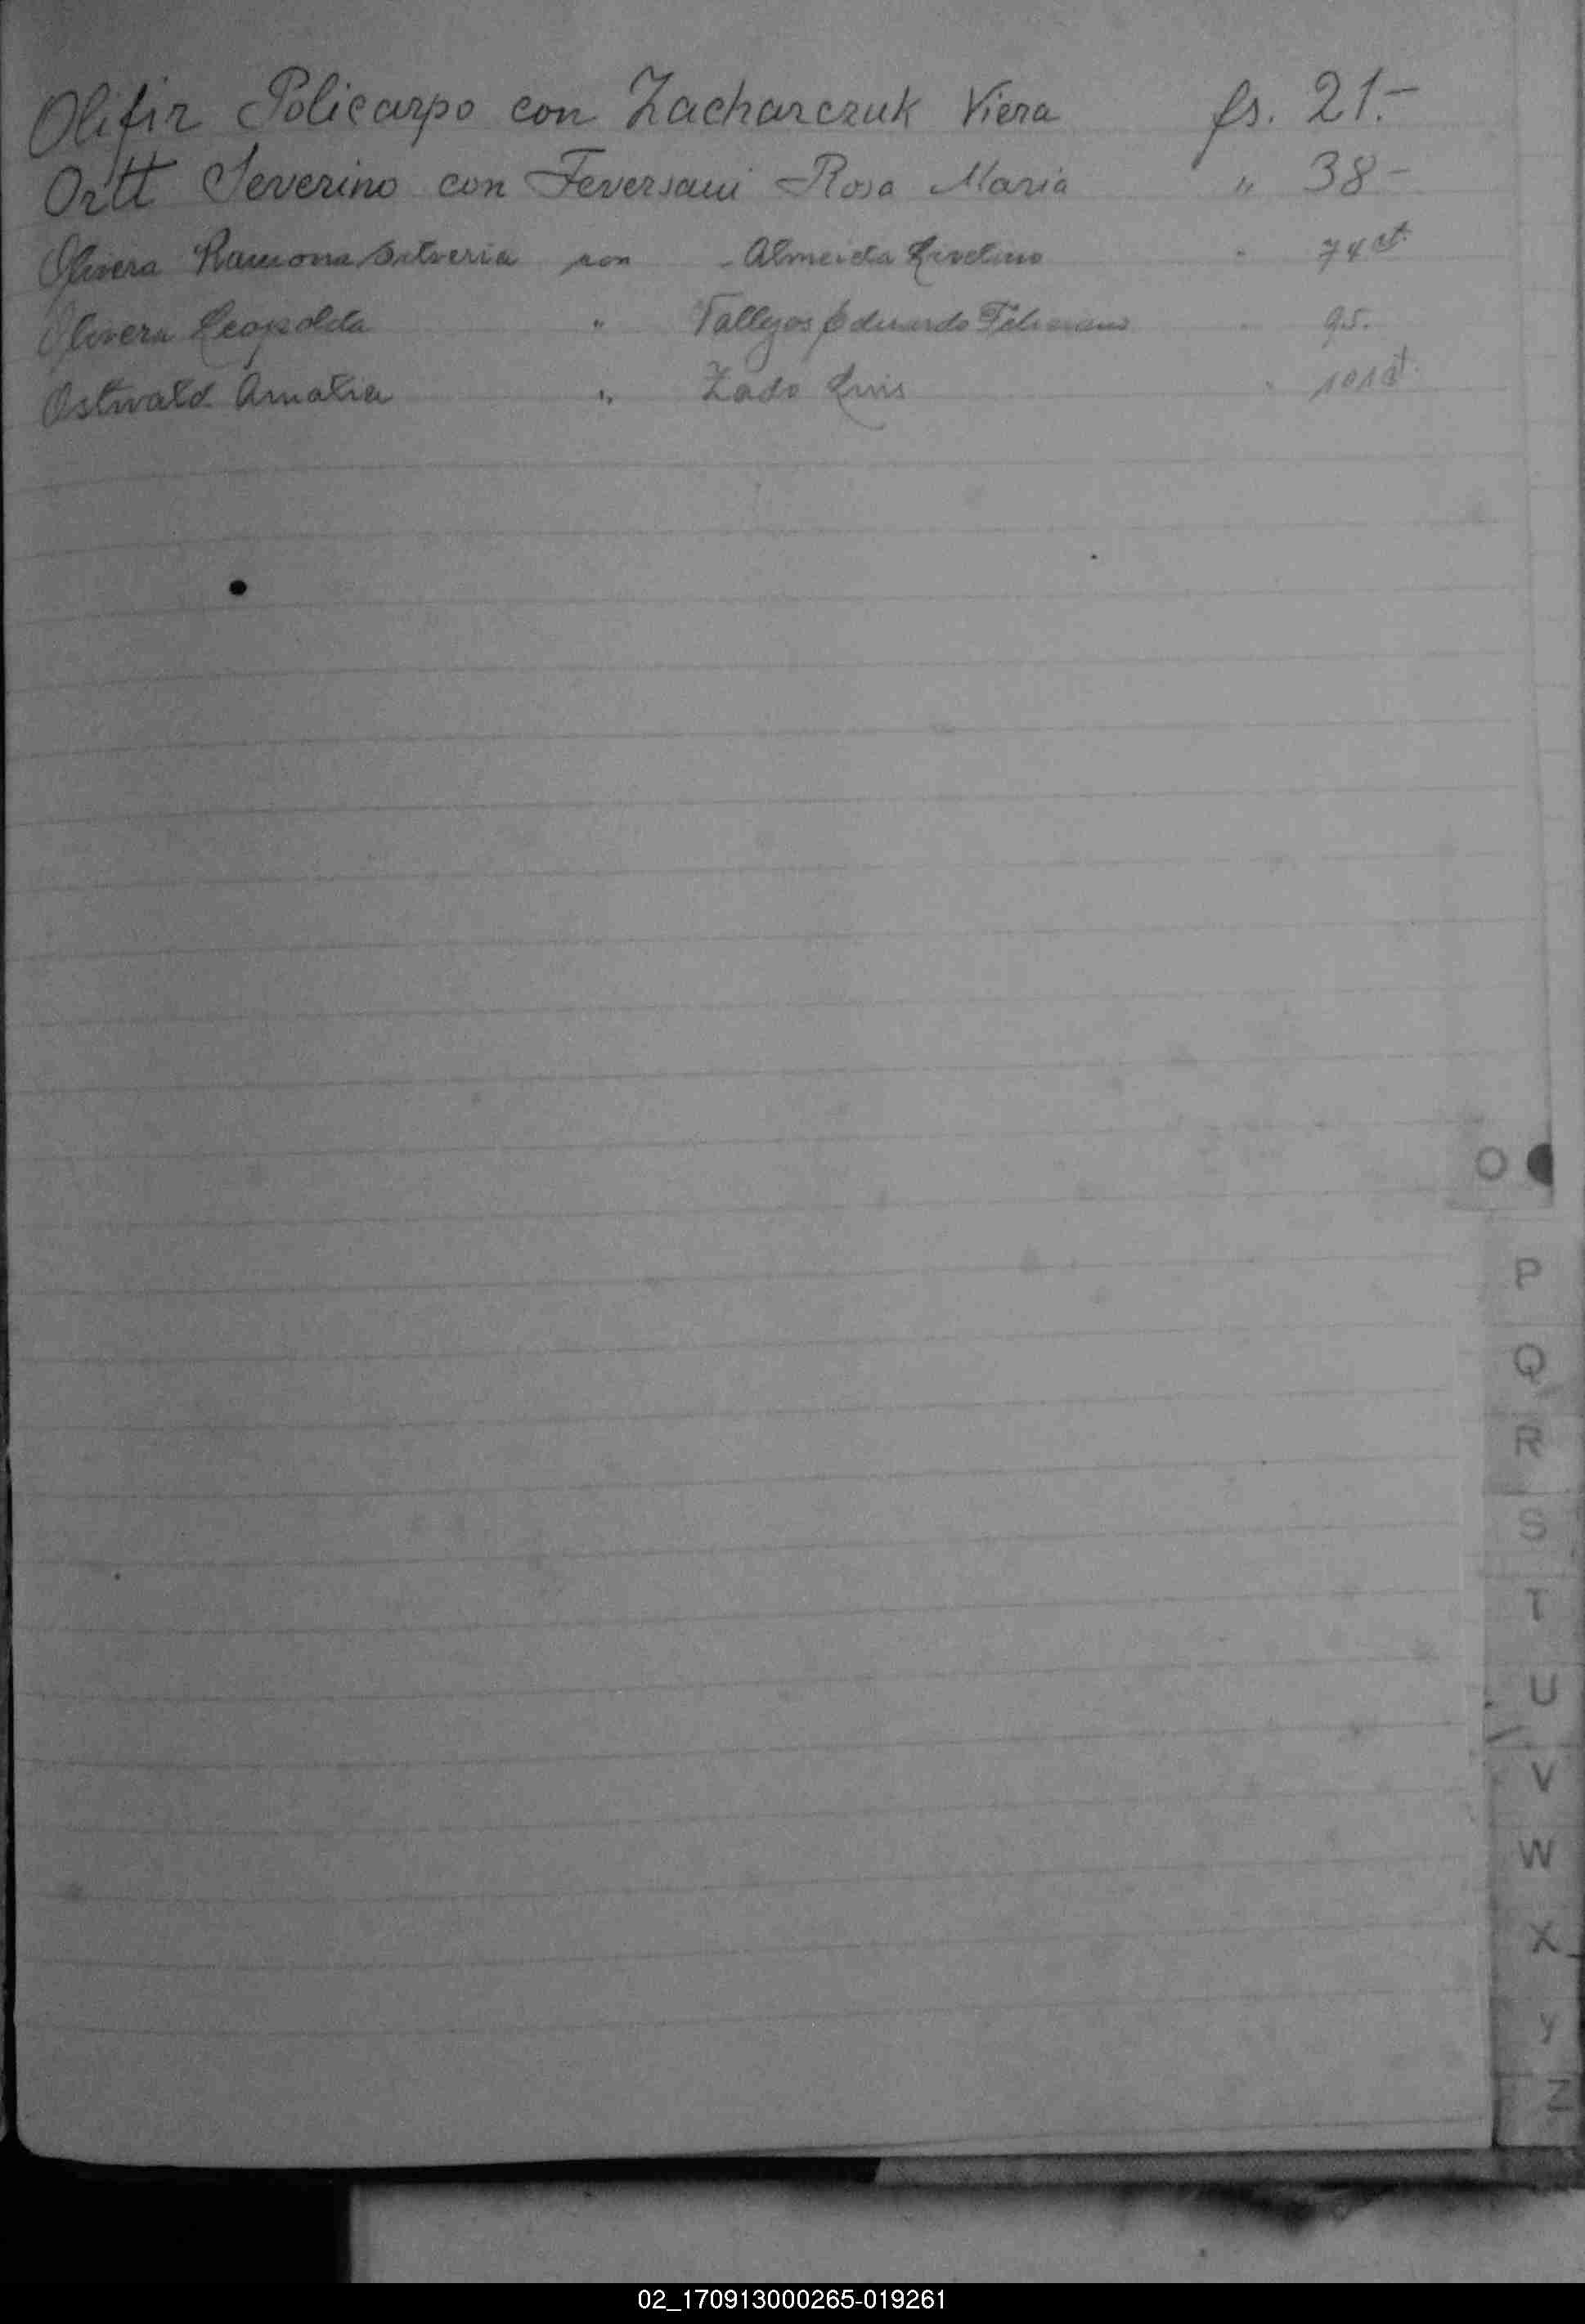 Olifir Policarpo con Zacharczuk Viera fs. 21.-
Ortt Severino con Feversani Rosa Maria " 38-
Olivera Ramona con - Almeida " 74
Olivera Leopolda " Vallejos Eduardo " 95.
Ostwald Amalia " Zado Luis " 101
O
P
Q
R
S
T
U
V
W
X
Y
Z
02_170913000265-019261